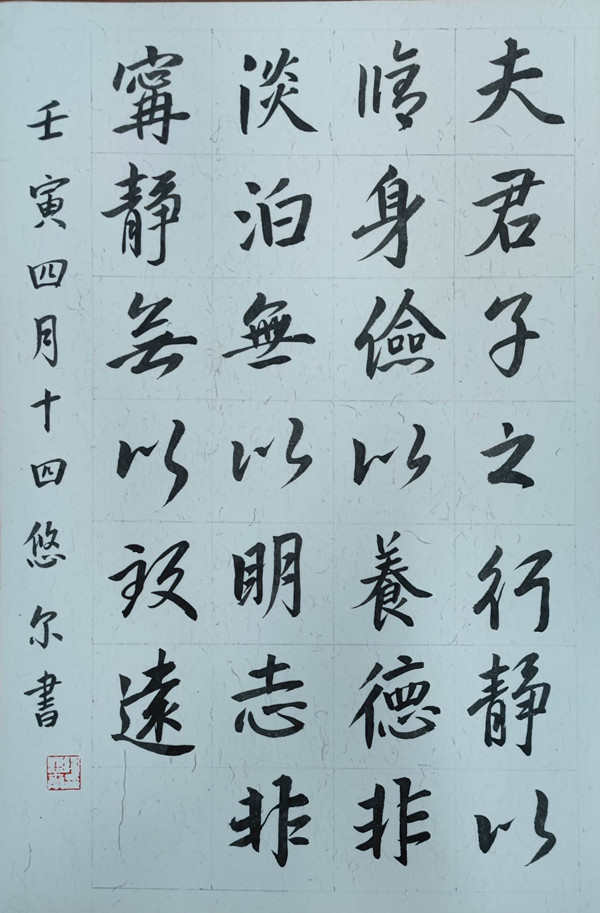 夫君子之行静以
脩身儉以養德非
淡泊無以明志非
寧静無以致遠
壬寅四月十四悠尔書